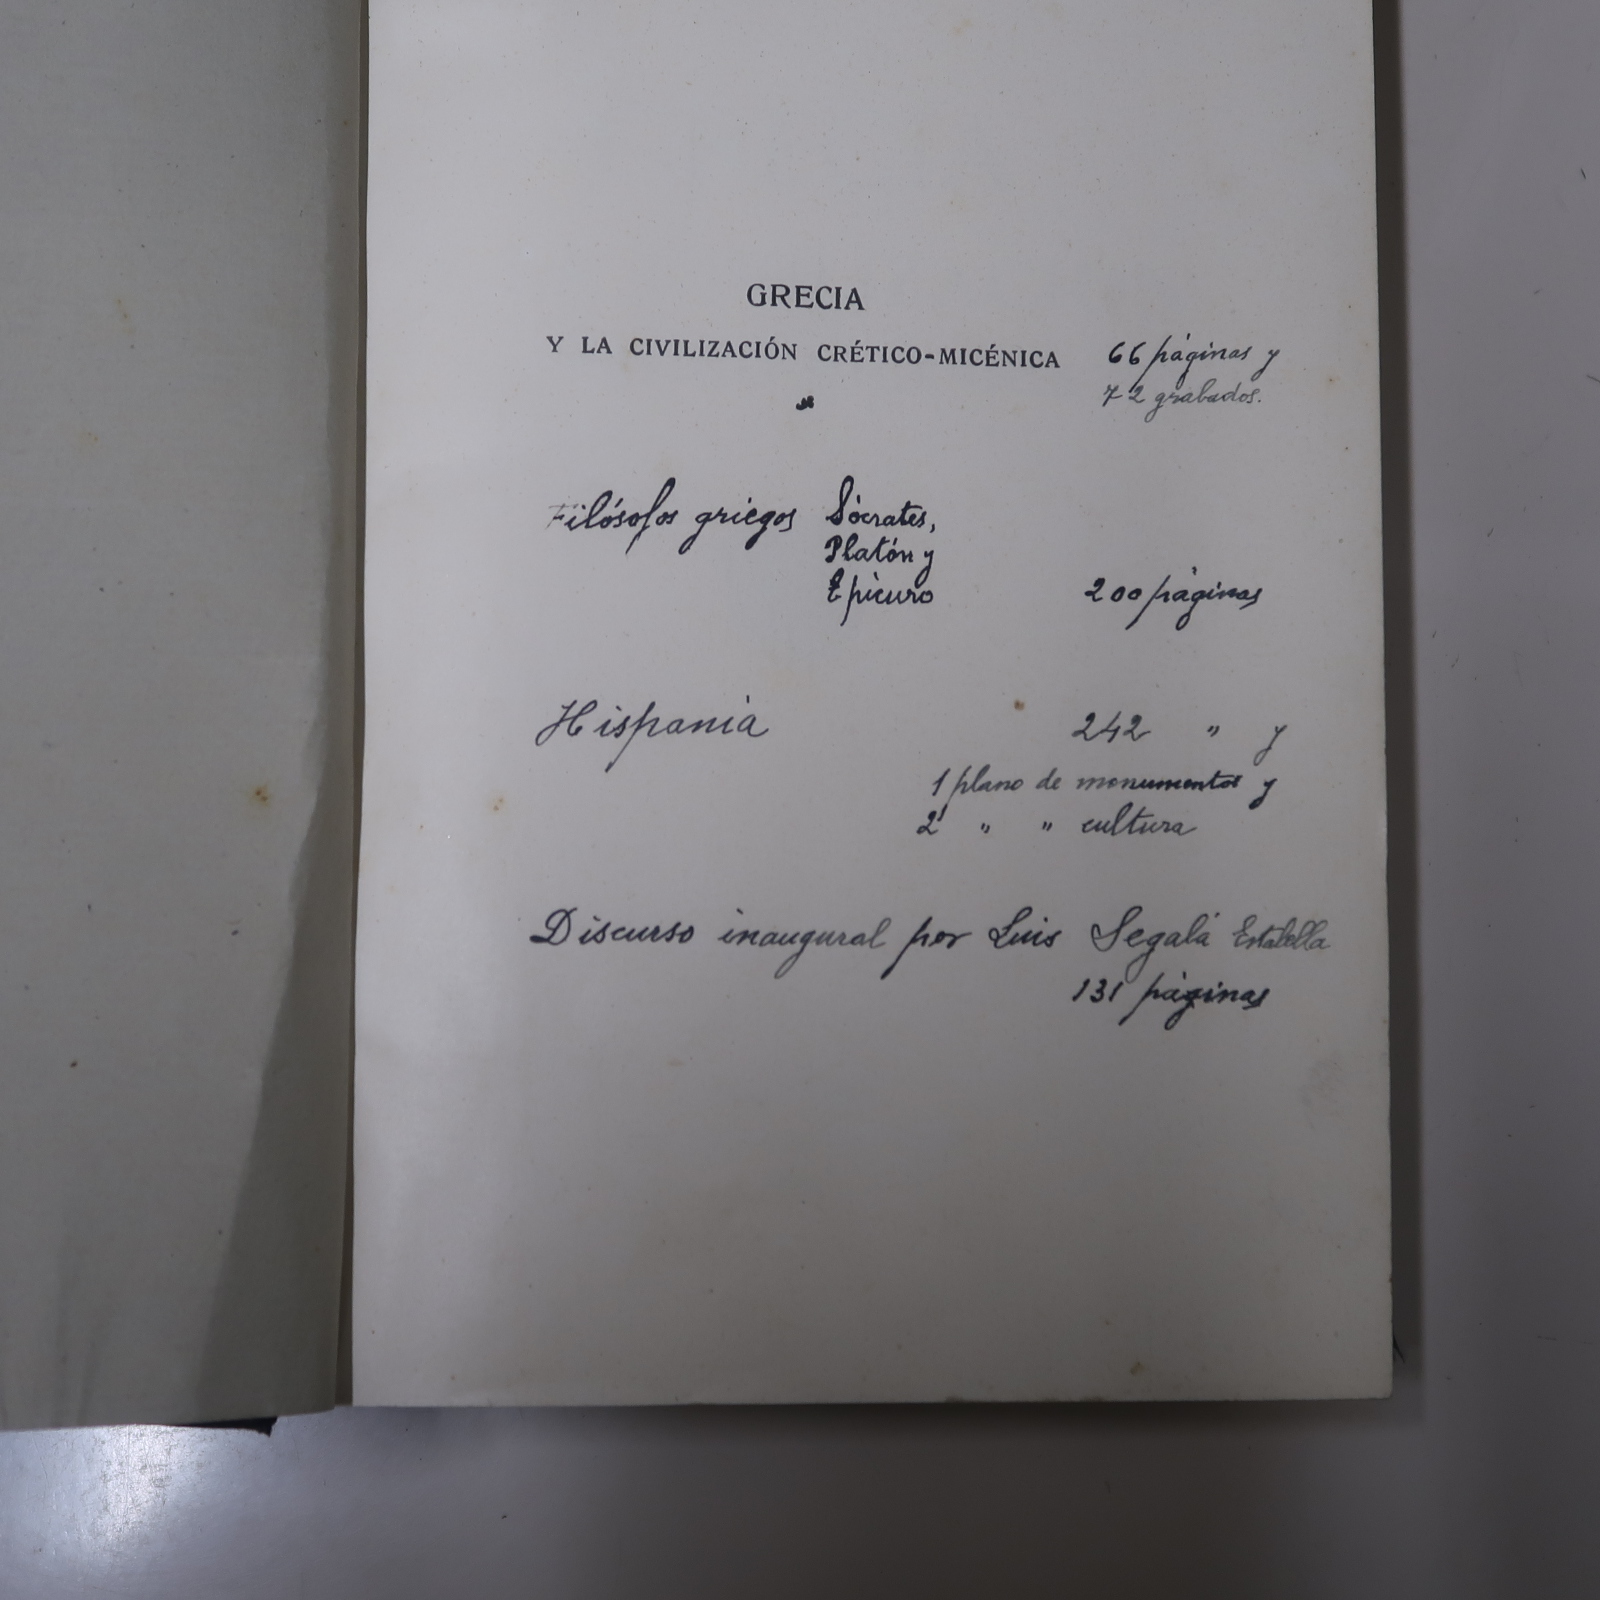 GRECIA
Y LA CIVILIZACIÓN CRÉTICO-MICÉNICA 66 páginas y
72 grabados.
Filósofos griegos Sócrates,
Platón y
Epicuro 200 páginas
Hispania 242 " y
1 plano de monumentos y
2 " " cultura
Discurso inaugural por Luis Segalá Estalella
131 páginas